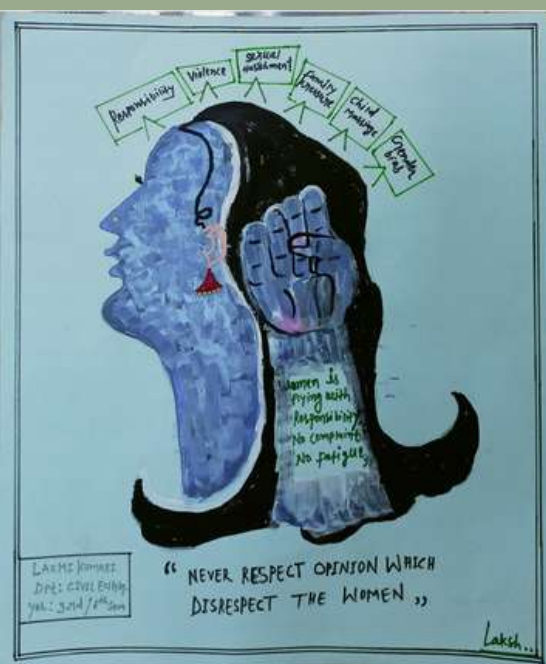 Responsibility
Violence
sexual
harassment
Family
pressure
Child
Marriage
Gender
bias
women is
flying with
Responsibility
No complaint
No fatigue
LAXMI KUMARI
Dpt: CIVIL Engg.
“ NEVER RESPECT OPINION WHICH
DISRESPECT THE WOMEN „
Laksh..